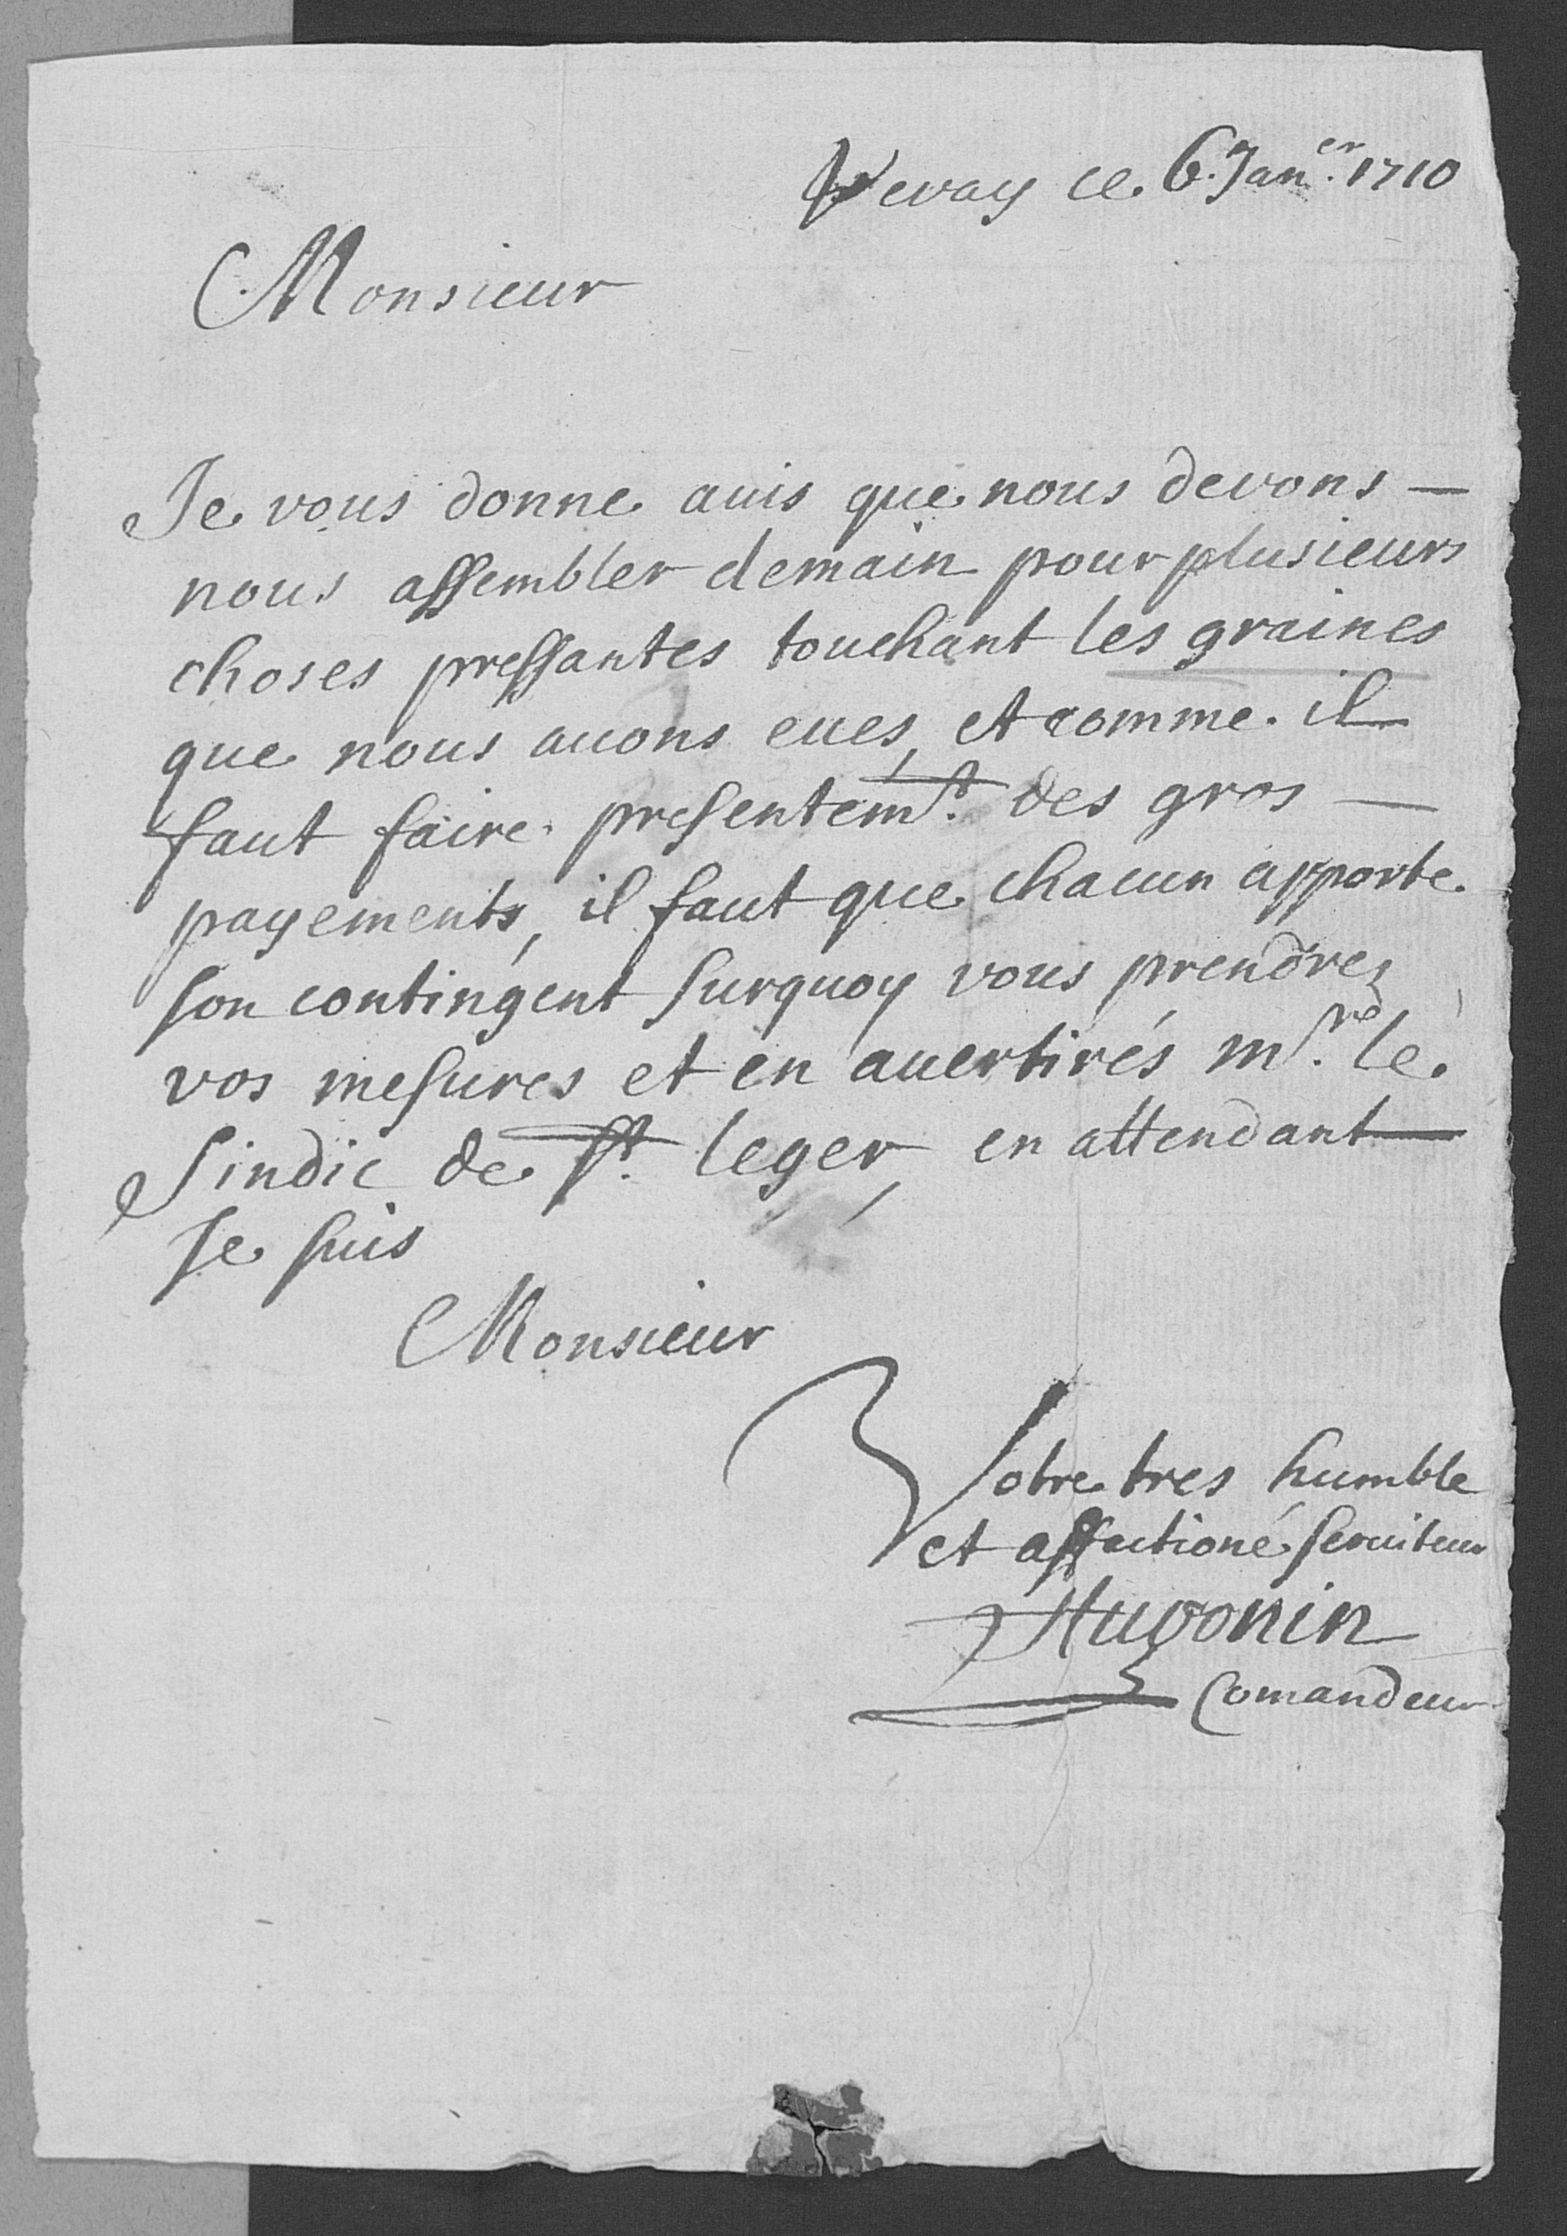 Vevay ce 6. Jan.er 1710
Monsieur
Je vous donne auis que nous devons —
nous assembler demain pour plusieurs
choses pressantes touchant les graines
que nous auons eues, et comme il
faut faire presentem.t des gros —
payements, il faut que chacun apporte
son contingent surquoy vous prendres
vos mesures et en auertirés m.r le
Sindic de St. leger, en attendant
Je suis
Monsieur
Votre tres humble
et affectioné seruiteur
Hugonin
Comandeur